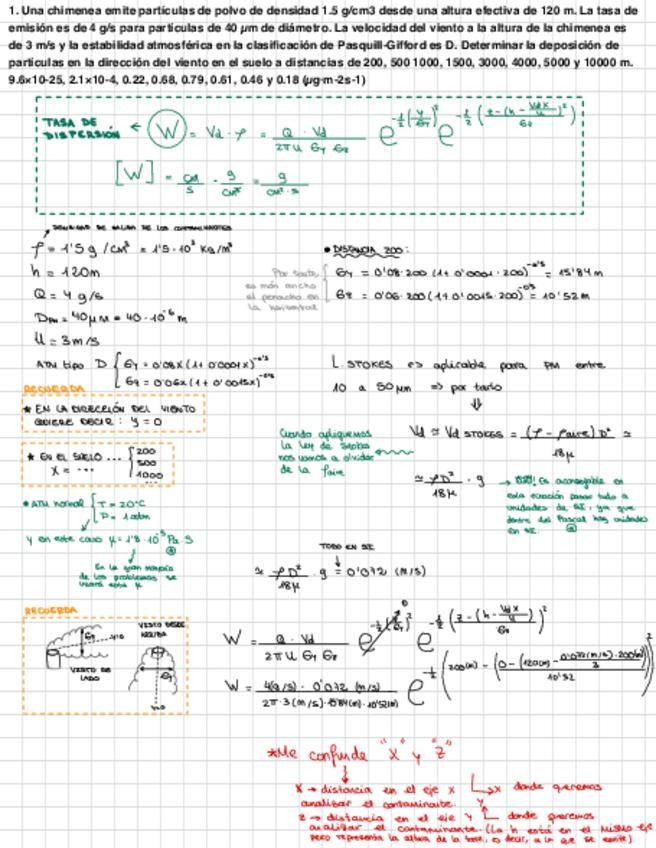 1. Una chimenea emite partículas de polvo de densidad 1.5 g/cm3 desde una altura efectiva de 120 m. La tasa de
emisión es de 4 g/s para partículas de 40 μm de diámetro. La velocidad del viento a la altura de la chimenea es
de 3 m/s y la estabilidad atmosférica en la clasificación de Pasquill-Gifford es D. Determinar la deposición de
partículas en la dirección del viento en el suelo a distancias de 200, 500 1000, 1500, 3000, 4000, 5000 y 10000 m.
9.6x10-25, 2.1x10-4, 0.22, 0.68, 0.79, 0.61, 0.46 y 0.18 (μg·m-2s-1)
TASA DE
DISPERSIÓN ← W = Vd · ρ = Q · Vd / 2π u σy σz e^-1/2(y/σy)² e^-1/2(z-(h-Vd x/u)/σz)²
[W] = cm/s · g/cm³ = g/cm²·s
DENSIDAD DE SALIDA DE LOS CONTAMINANTES
ρ = 1'5 g/cm³ = 1'5·10³ kg/m³
h = 120m
Q = 4 g/s
Dpm = 40μm = 40·10⁻⁶ m
u = 3m/s
ATM tipo D { σy = 0'08x(1+0'0001x)^-0'5
σz = 0'06x(1+0'0015x)^-0'5
• DISTANCIA 200:
Por tanto,
es más ancho
el penacho en
la horizontal
σy = 0'08·200(1+0'0001·200)^-0'5 = 15'84m
σz = 0'06·200(1+0'0015·200)^-0'5 = 10'52m
RECUERDA
* EN LA DIRECCIÓN DEL VIENTO
QUIERE DECIR: y = 0
* EN EL SUELO ... { 200
x = ... 500
1000
...
L. STOKES => aplicable para PM entre
10 a 50μm => por tanto
Cuando apliquemos
la ley de Stokes
nos vamos a olvidar
de la ρaire
Vd ≃ Vd STOKES = (ρ - ρaire) D² / 18μ ≃
≃ ρD²/18μ · g
Es aconsejable en
esta ecuación pasar todo a
unidades de SI, ya que
dentro del Pascal hay unidades
en SI.
• ATM normal { T = 20°C
P = 1atm
y en este caso μ = 1'8·10⁻⁵ Pa·s
En la gran mayoría
de los problemas se
usará esta μ
TODO EN SI
≃ ρD²/18μ · g = 0'072 (m/s)
RECUERDA
VISTO DE
LADO
VISTO DESDE
ARRIBA
W = Q · Vd / 2π u σy σz e^-1/2(y/σy)² e^-1/2(z-(h-Vd x/u)/σz)²
0
W = 4(g/s) · 0'072 (m/s) / 2π·3(m/s)·15'84(m)·10'52(m)
*Me confunde "x" y "z"
x → distancia en el eje x donde queremos
analizar el contaminante.
z → distancia en el eje y donde queremos
analizar el contaminante. (La h está en el mismo eje
pero representa la altura de la